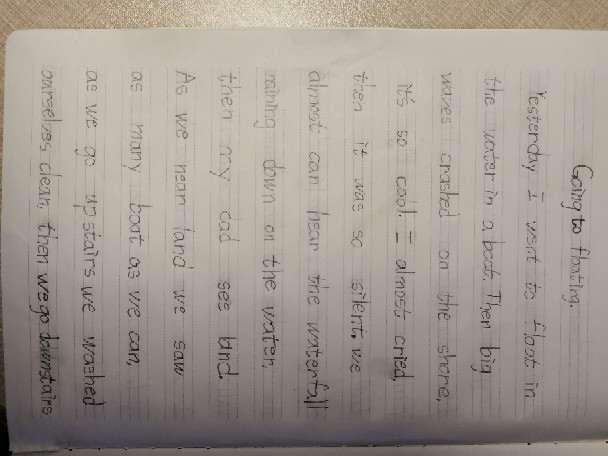 Going to floating.
Yesterday I went to float in
the water in a boat. Then big
waves crashed on the shore,
it's so cool. I almost cried,
then it was so silent, we
almost can hear the waterfall
raining down on the water,
then my dad see land.
As we near land we saw
as many boat as we can
as we go upstairs we washed
ourselves clean, then we go downstairs